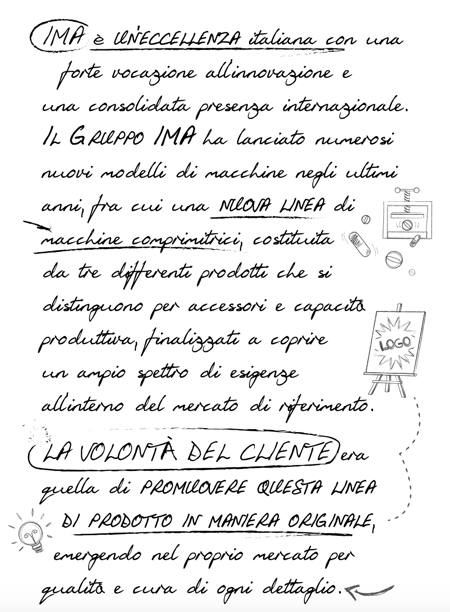 IMA è UN'ECCELLENZA italiana con una
forte vocazione all'innovazione e
una consolidata presenza internazionale.
IL GRUPPO IMA ha lanciato numerosi
nuovi modelli di macchine negli ultimi
anni, fra cui una NUOVA LINEA di
macchine comprimitrici, costituita
da tre differenti prodotti che si
distinguono per accessori e capacità
produttiva, finalizzati a coprire
LOGO
un ampio spettro di esigenze
all'interno del mercato di riferimento.
LA VOLONTÀ DEL CLIENTE era
quella di PROMUOVERE QUESTA LINEA
DI PRODOTTO IN MANIERA ORIGINALE,
emergendo nel proprio mercato per
qualità e cura di ogni dettaglio.